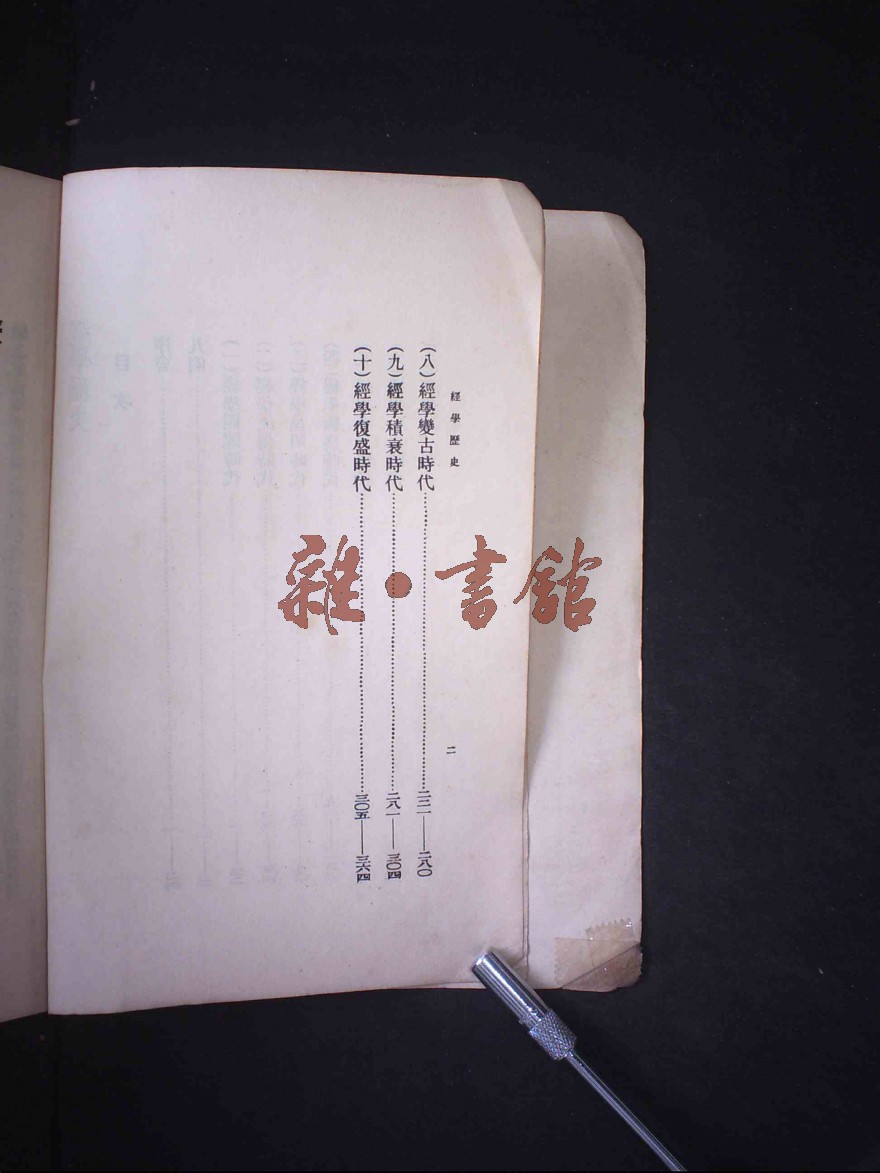 經學歷史
二
(八)經學變古時代……二二一——二八〇
(九)經學積衰時代……二八一——三〇四
(十)經學復盛時代……三〇五——三六四
雜·書館